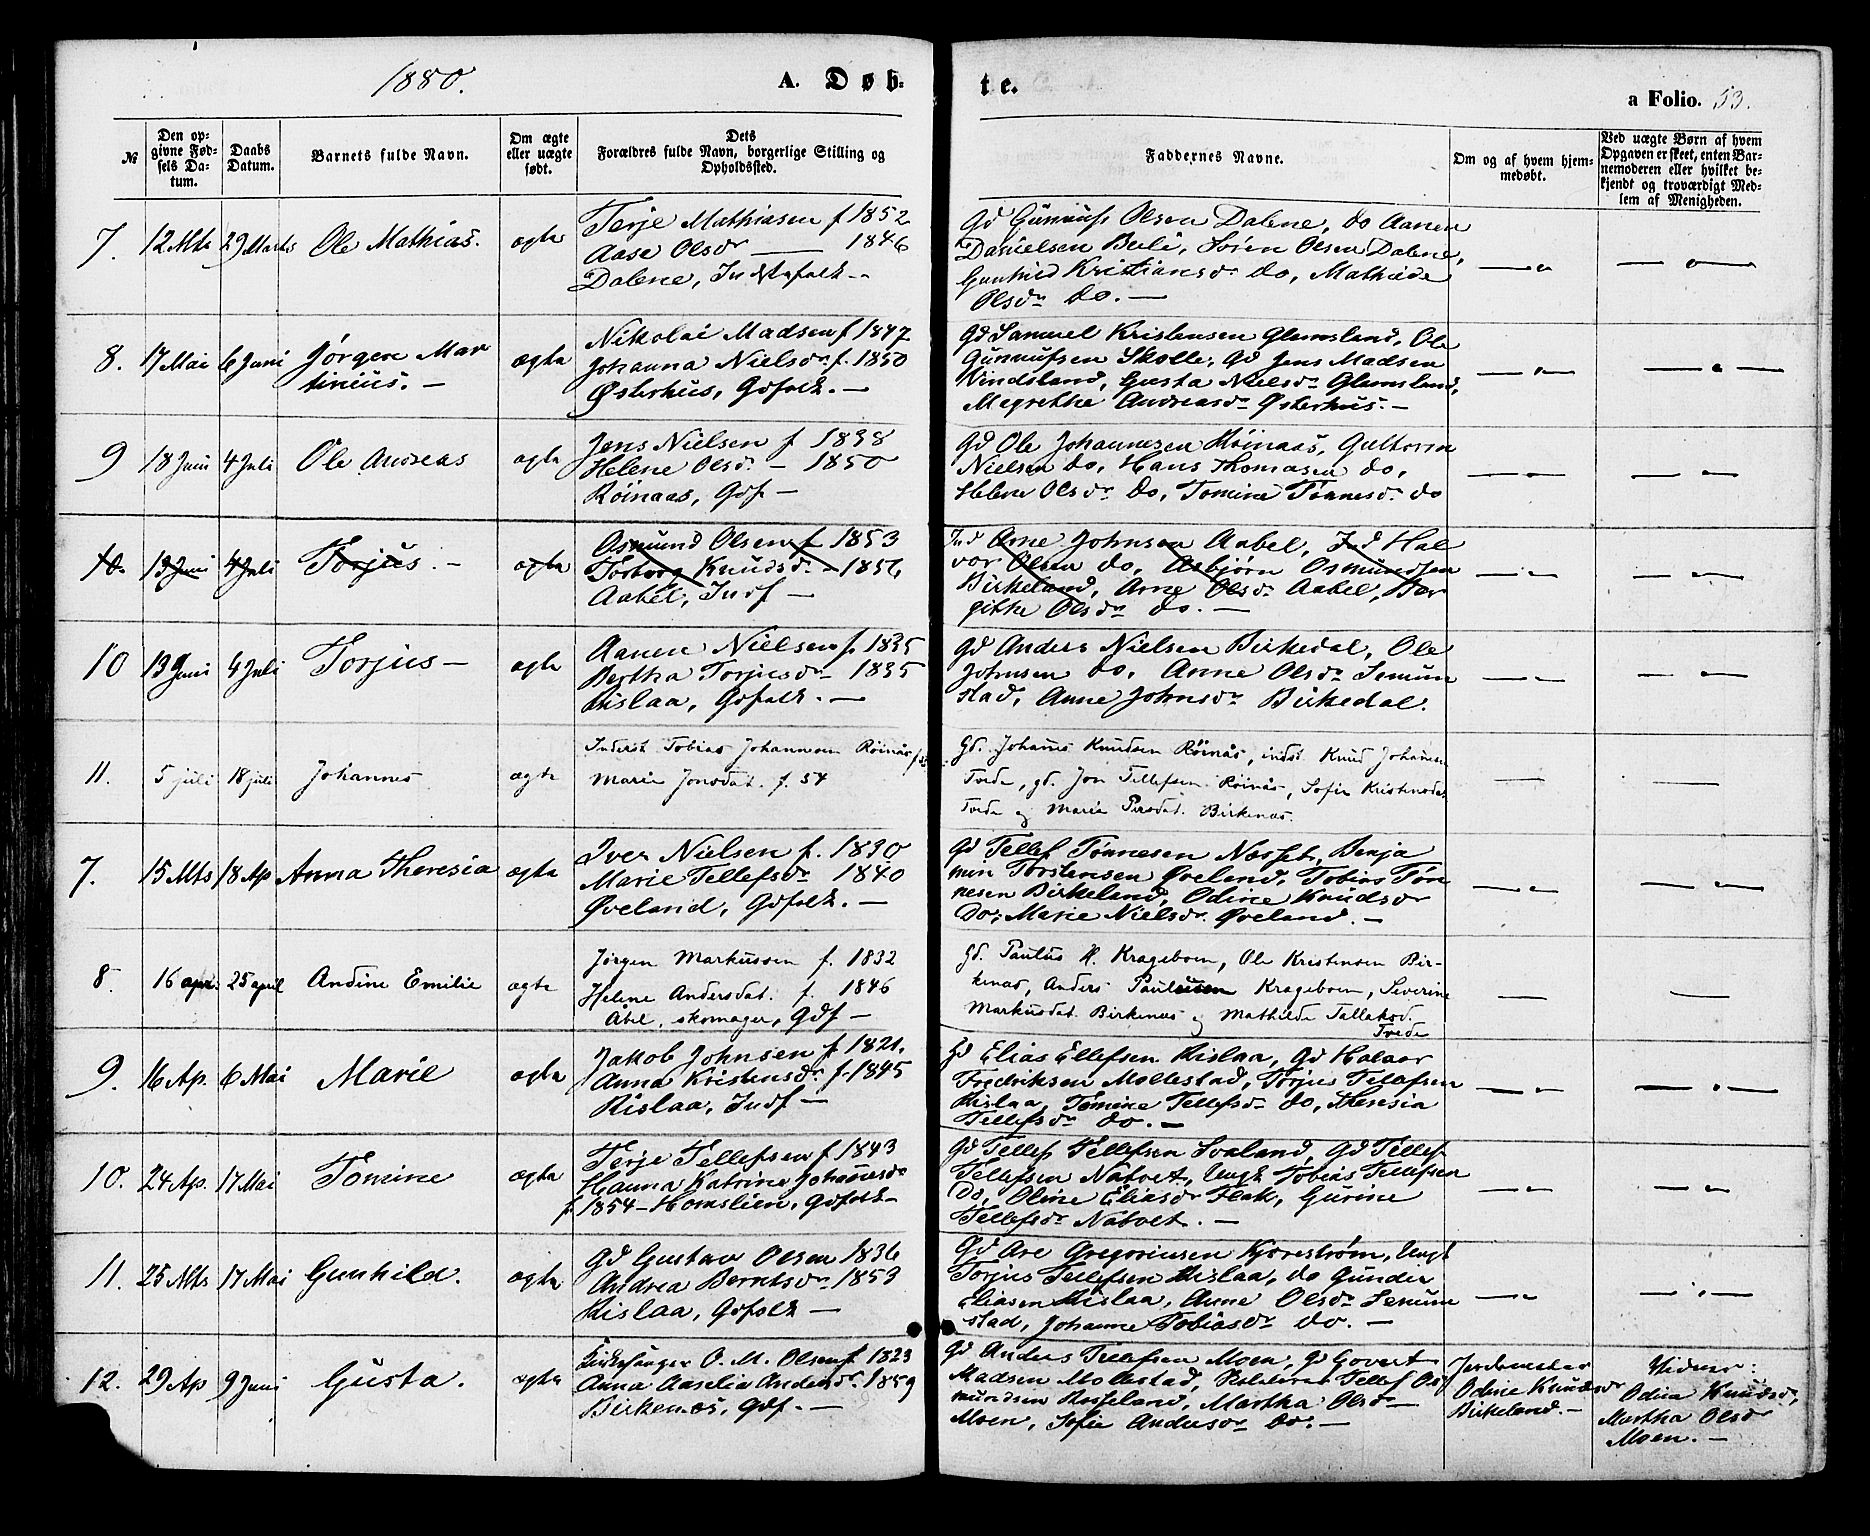 1880.
A. Døb-
te.
a Folio. 53.
№
Den op-
givne Fød-
sels Da-
tum.
Daabs
Datum.
Barnets fulde Navn.
Om ægte
eller uægte
født.
Dets
Forældres fulde Navn, borgerlige Stilling og
Opholdssted.
Faddernes Navne.
Om og af hvem hjem-
medøbt.
Ved uægte Børn af hvem
Opgaven er skeet, enten Bar-
nemoderen eller hvilket be-
kjendt og troværdigt Med-
lem af Menigheden.
7. 12 Mts 29 Marts Ole Mathias. ægte
Terje Mathiasen f 1852
Aase Olsdr — 1846
Dalene, Indstfolk —
Gd Gunnuf Olsen Dalene, do Aanen
Danielsen Beli, Søren Olsen Dalene,
Gunhild Kristiansdr do, Mathilde
Olsdr do. —
8. 17 Mai 6 Juni Jørgen Mar
tinius. — ægte
Nikolai Madsen f 1847
Johanna Nielsdr f. 1850
Østerhus, Gdfolk. —
Gd Samuel Kristensen Glamsland, Ole
Gunnufsen Skolle, Gd Jens Madsen
Vindsland, Gusta Nielsdr Glamsland,
Megrethe Andreasdr Østerhus. —
9 18 Juni 4 Juli Ole Andreas ægte
Jens Nielsen f 1838
Helene Olsdr — 1850
Røinaas, Gdf —
Gd Ole Johannesen Røinaas, Guttorm
Nielsen do, Hans Thomasen do,
Helene Olsdr do, Tomine Tønnesdr do
10. 13 Juni 4 Juli Torjus. — ægte
Osmund Olsen f 1853
Torborg Knudsdr — 1856
Aabel, Indf —
Ind Arne Johnsen Aabel, Ind Hal
vor Olsen do, Asbjørn Osmundsen
Birkeland, Arne Olsdr Aabel, Bor
githe Olsdr do. —
10 13 Juni 4 Juli Torjus — ægte
Aanen Nielsen f 1835
Bertha Torjusdr 1835
Rislaa, Gdfolk. —
Gd Anders Nielsen Birkedal, Ole
Johnsen do. Anne Olsdr Senum
stad, Anne Johnsdr Birkedal.
11. 5 juli 18 juli Johannes ægte
Inderst Tobias Johannesen Röinås
Marie Jonsdat. f. 54
Gd. Johans Knudsen Röinås, indst Knud Johansen
Tvede, gd. Jon Tellefsen Röinås, Sofie Kristensdat
Tvede og Marie Persdat. Birkenes.
7. 15 Mts 18 Ap Anna Theresia ægte
Iver Nielsen f. 1830
Marie Tellefsdr 1840
Øveland, Gdfolk. —
Gd Tellef Tønnesen Næsset, Benja
min Torstensen Øveland, Tobias Tøn
nesen Birkeland, Odine Knudsdr
do, Marie Nielsdr Øveland. —
8. 16 april 25 april Andine Emilie ægte
Jörgen Markussen f. 1832
Helene Andersdat. f. 1846
Åbel, skomager, Gdf —
Gd. Paulus H. Krageboen, Ole Kristensen Bir-
kenes, Anders Paulusen Krageboen, Severine
Markusdat. Birkenes og Mathilde Tallaksd.
Tvede
9. 16 Ap. 6 Mai Marie ægte
Jakob Johnsen f 1821.
Anna Kristensdr f. 1845
Rislaa, Indf —
Gd Elias Ellefsen Rislaa, Gd Halvor
Fredriksen Mollestad, Torjus Tellefsen
Rislaa, Tomine Tellefsdr do, Theresia
Tellefsdr do. —
10. 24 Ap. 17 Mai Tomine ægte
Terje Tellefsen f 1843
Hanna Katrine Johannesdr
f 1854 — Homslien, Gdfolk —
Gd Tellef Tellefsen Svaland, Gd Tellef
Tellefsen Natvet, Ungk Tobias Tellefsen
do, Oline Eliasdr Flak, Gurine
Tellefsdr Natvet. —
11. 25 Mts 17 Mai Gunhild. ægte
Gd Gustav Olsen 1836
Andrea Berntsdr 1853
Rislaa, Gdfolk —
Gd Are Gregoriusen Kjørestrøm, Ungk
Torjus Tellefsen Rislaa, do Gunder
Eliasen Rislaa, Anne Olsdr Senum
stad, Johanne Tobiasdr do. —
12. 29 Ap 9 Juni Gusta. ægte
Kirkesanger O. M. Olsen f. 1823
Anna Aaselia Andersdr 1859
Birkenes, Gdf. —
Gd Anders Tellefsen Moen, Gd Govert
Madsen Mollestad, Tellef Os
mundsen Rosseland, Martha Olsdr
Moen, Sofie Andersdr do. —
Jordemoder
Odine Knudsdr
Birkeland. —
Vidner:
Odine Knudsdr,
Martha Olsdr
Moen. —